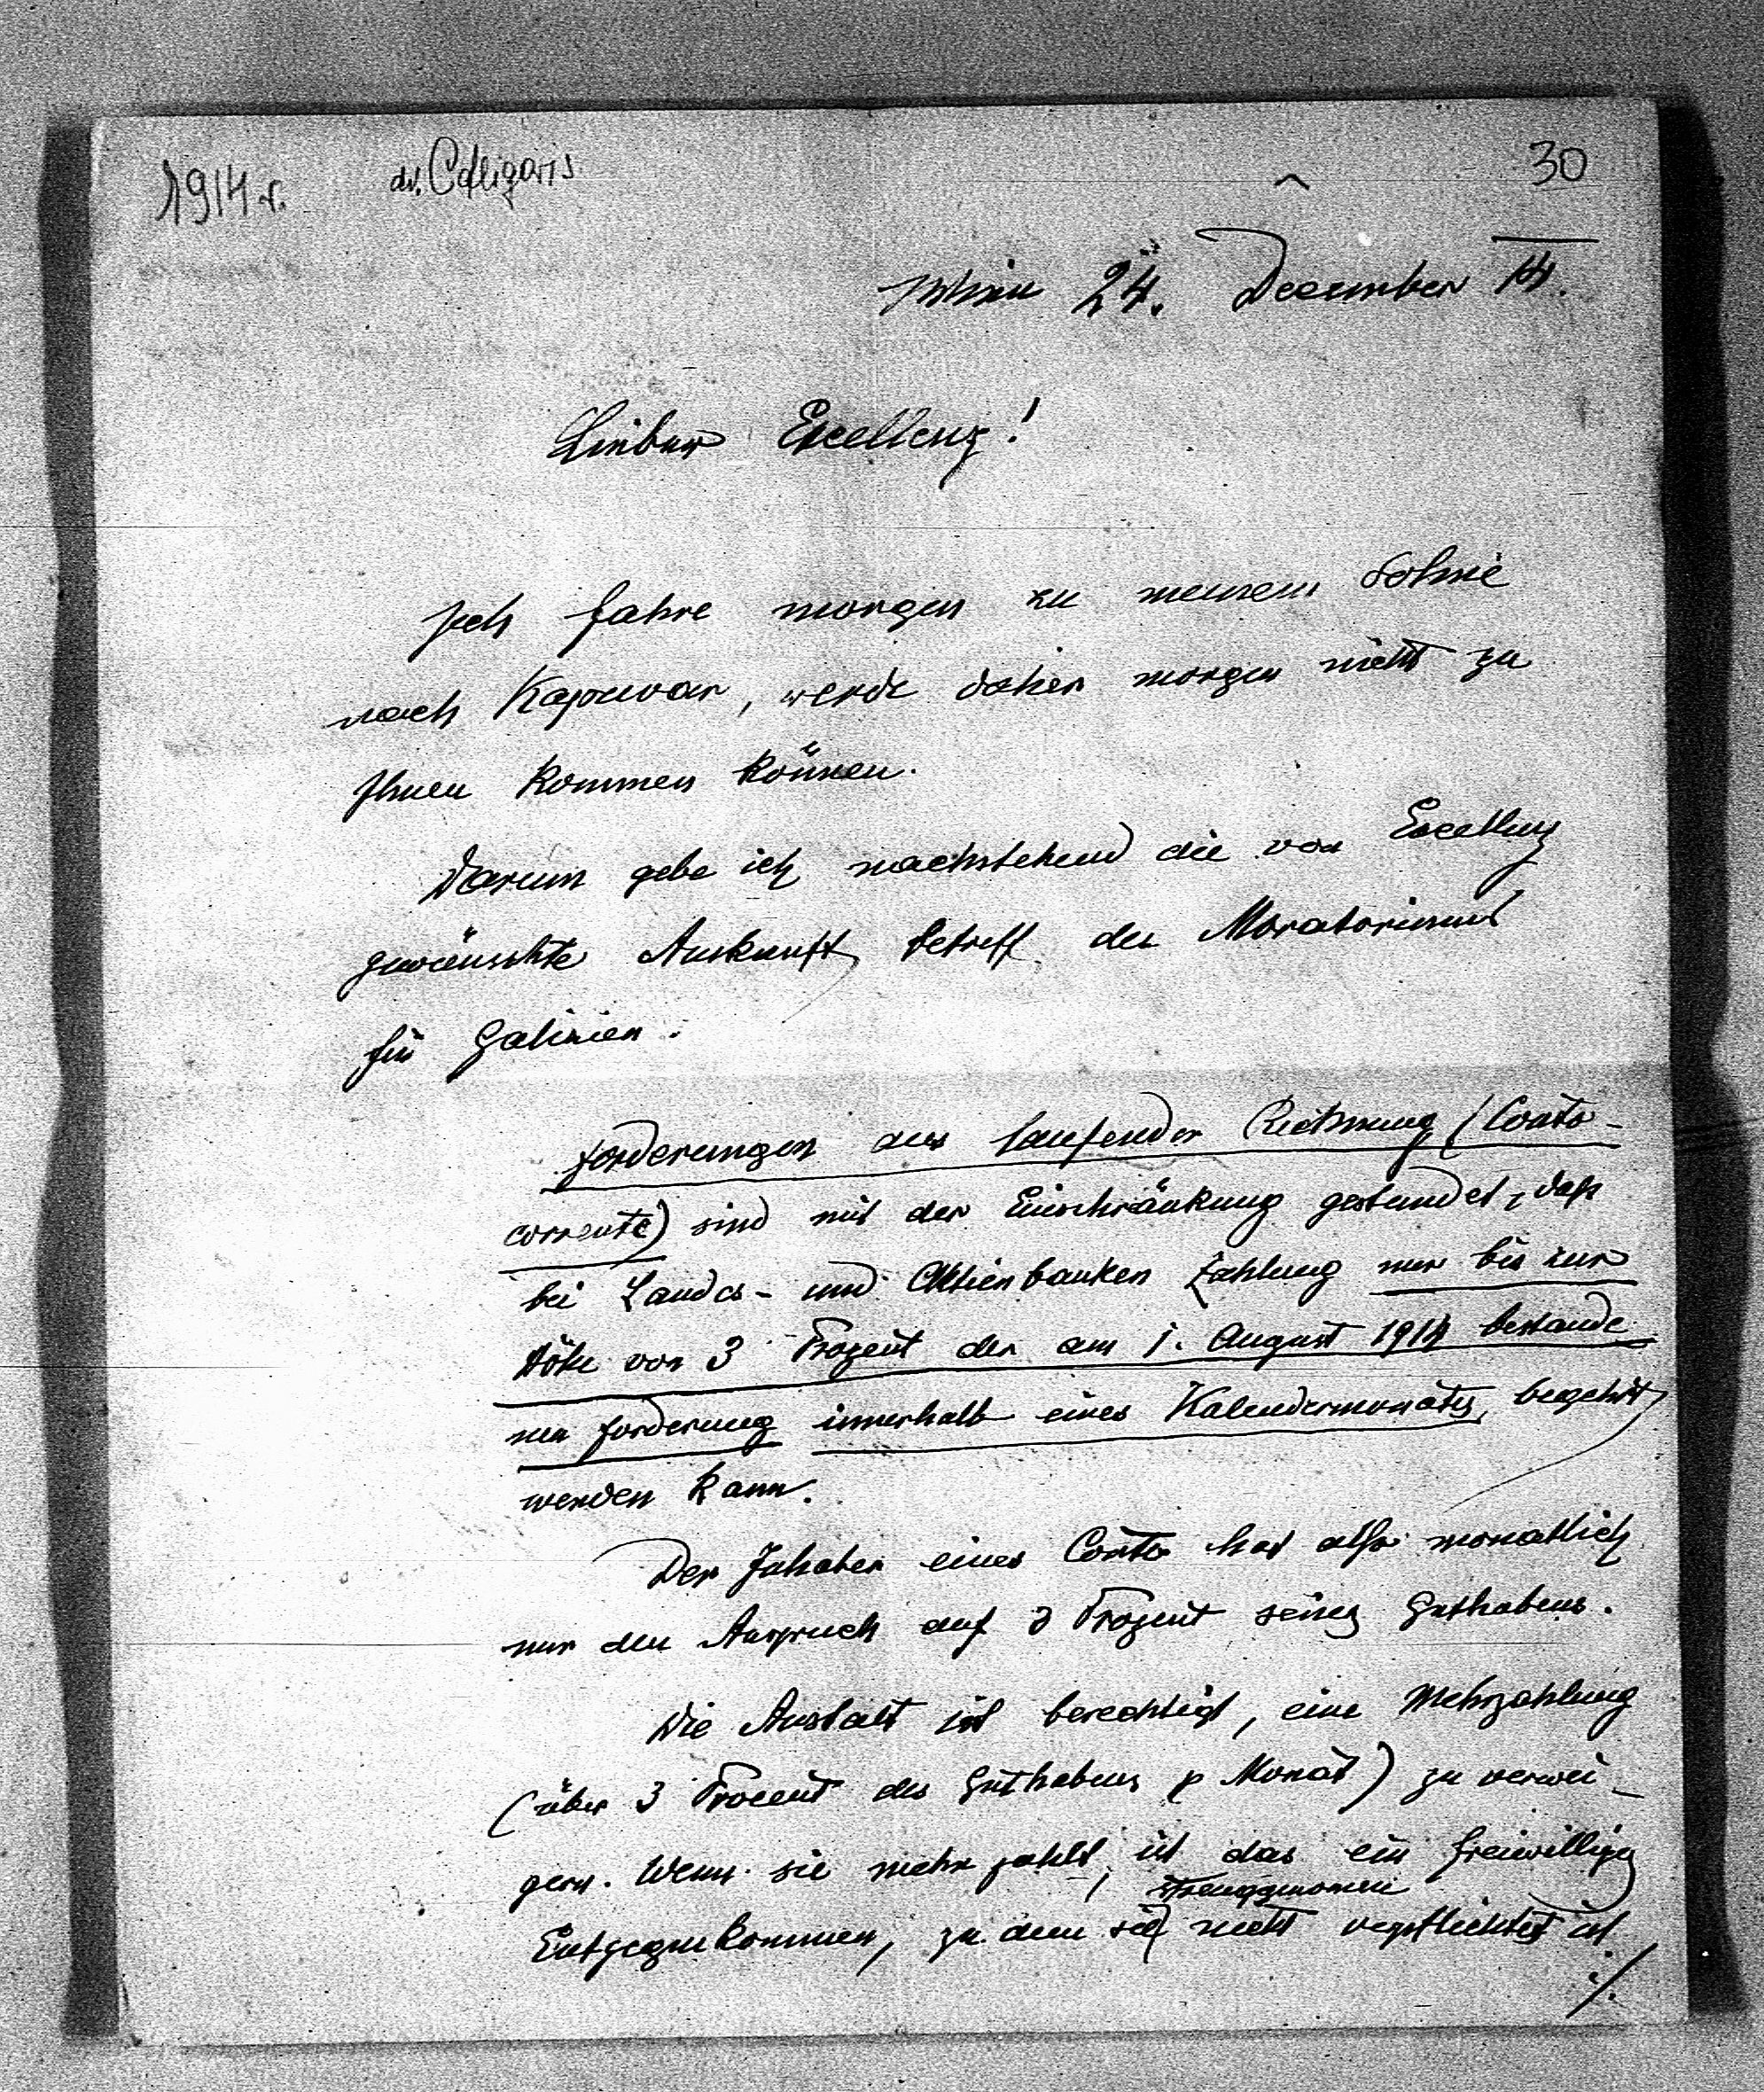 1914 r.
dr. Calligaris
30
Wien 24. December 14.
Lieber Excellenz!
Ich fahre morgen zu meinem Sohne
nach Kapuvar, werde daher morgen nicht zu
Ihnen kommen können.
Darum gebe ich nachstehend die von Excellenz
gewünschte Auskunft betreff des Moratoriums
für Galizien.
Forderungen aus laufender Rechnung (Conto-
corrente) sind mit der Einschränkung gestundet, daß
bei Landes- und Aktienbanken Zahlung nur bis zur
Höhe von 3 Prozent der am 1. August 1914 bestande
nen Forderung innerhalb eines Kalendermonates, begehrt
werden kann.
Der Inhaber eines Conto hat also monatlich
nur den Anspruch auf 3 Prozent seines Guthabens.
Die Anstalt ist berechtigt, eine Mehrzahlung
(über 3 Procent des Guthabens p Monat) zu verwei-
gern. Wenn sie mehr zahlt, ist das ein freiwillig
strenggenommen
Entgegenkommen, zu dem sie nicht verpflichtet ist
./.